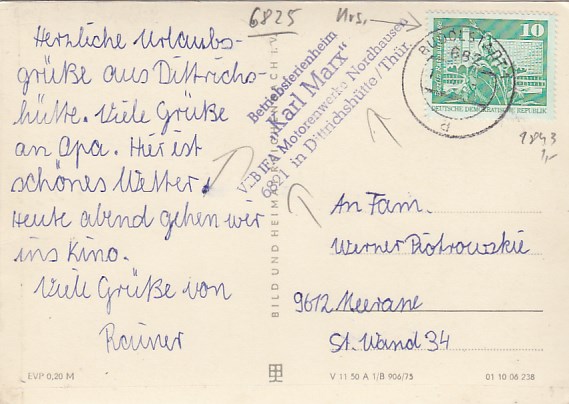 6825
Nrs.
Herzliche Urlaubs-
grüße aus Dittrichs-
hütte. Viele Grüße
an Opa. Hier ist
schönes Wetter.
Heute abend gehen wir
ins Kino.
Viele Grüße von
Rainer
EVP 0,20 M
Betriebsferienheim
"Karl Marx"
VEB IFA Motorenwerke Nordhausen
6821 in Dittrichshütte/Thür.
BILD UND HEIMAT REICHENBACH I.V.
10
DEUTSCHE DEMOKRATISCHE REPUBLIK
RUDOLSTADT
682
1,-
An Fam.
Werner Piotrowskie
9612 Meerane
St. Wand 34
V 11 50 A 1/B 906/75
01 10 06 238